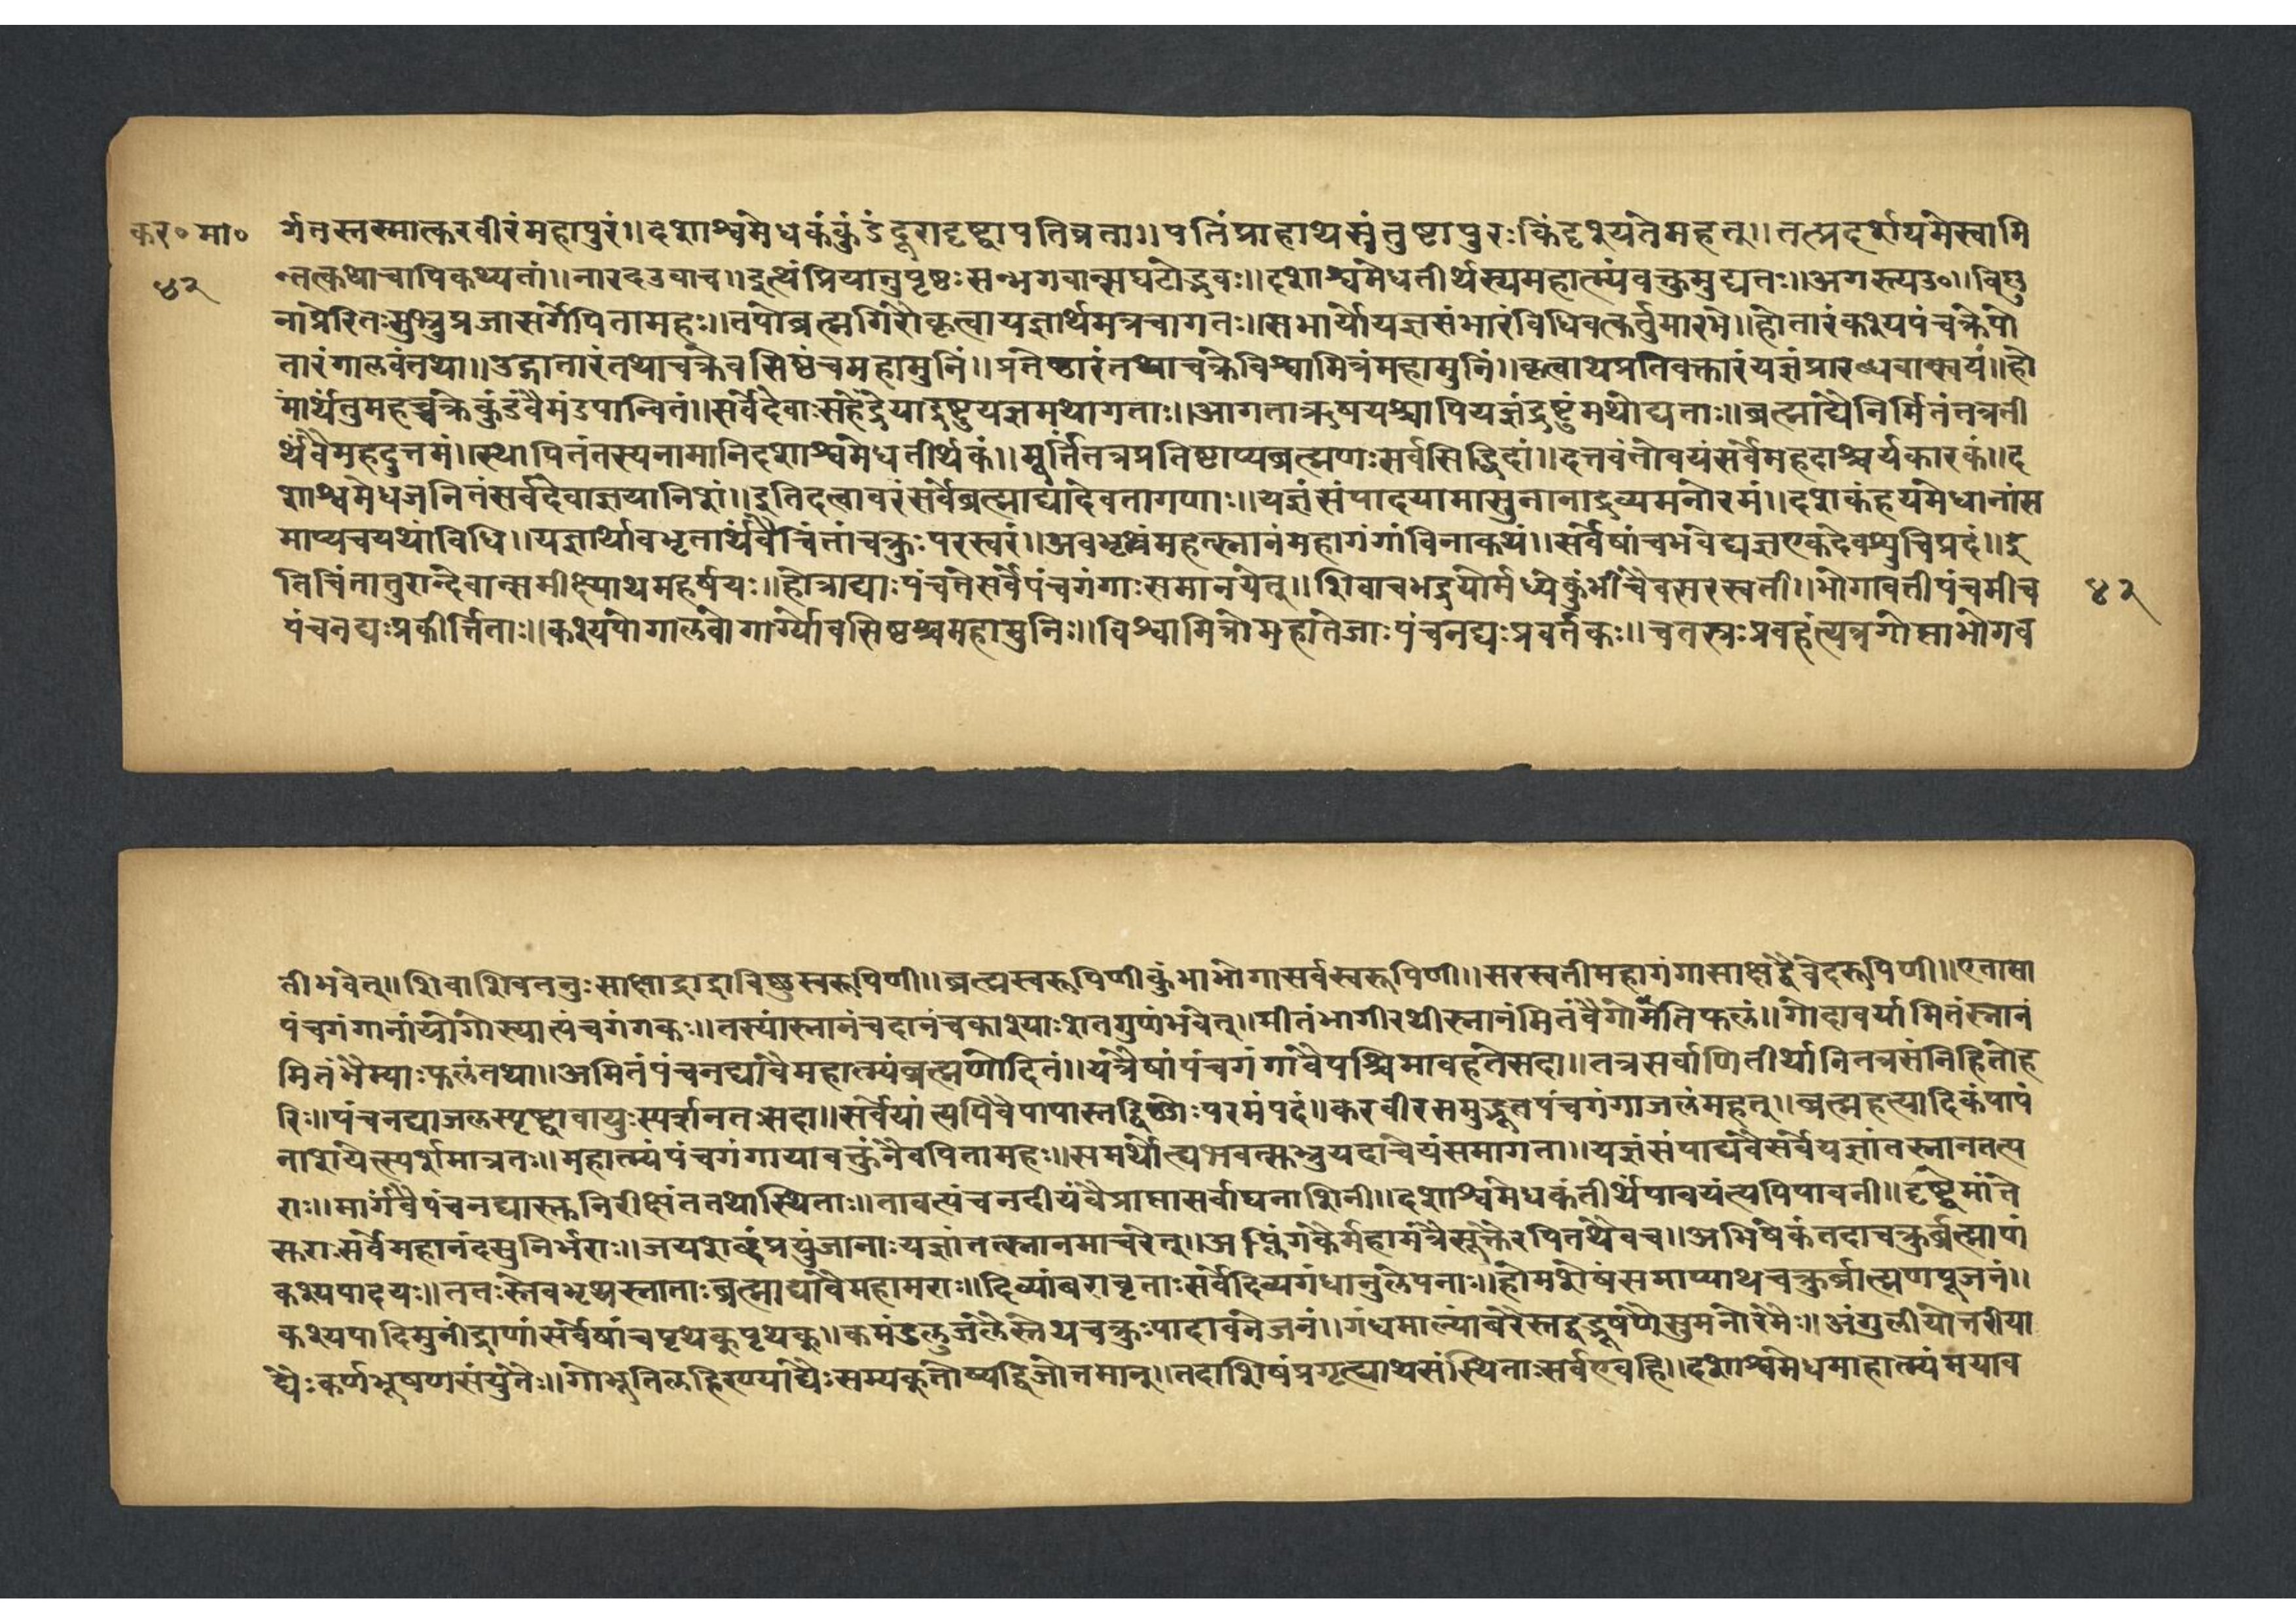 कर॰मा॰
४२
र्गतस्तस्मात्करवीरंमहापुरं॥दशाश्वमेधकंकुंडंदूरादृष्ट्वापतिव्रता॥पतिंप्राहाथसंतुष्टापुरःकिंदृश्यतेमहत्॥तत्प्रदर्शयमेस्वामि
न्तत्कथाचापिकथ्यतां॥नारदउवाच॥इत्थंप्रियानुपृष्ठःसन्भगवान्सघटोद्भवः॥दशाश्वमेधतीर्थस्यमहात्म्यंवक्तुमुद्यतः॥अगस्त्यउ०॥विष्णु
नाप्रेरितःसुभ्रुप्रजासर्गेपितामहः॥तपोब्रह्मगिरौकृत्वायज्ञार्थमत्रचागतः॥सभार्योयज्ञसंभारंविधिवत्कर्तुमारभे॥होतारंकश्यपंचक्रेपो
तारंगालवंतथा॥उद्गातारंतथाचक्रेवसिष्ठंचमहामुनिं॥प्रतेष्ठारंतथाचक्रेविश्वामित्रंमहामुनिं॥कृत्वाथप्रतिवक्तारंयज्ञंप्रारब्धवान्स्वयं॥हो
मार्थंतुमहच्चक्रेकुंडंवैमंडपान्वितं॥सर्वेदेवाःसहेंद्रेयाद्रष्टुयज्ञमथागताः॥आगताऋषयश्चापियज्ञंद्रष्टुंमथोद्यताः॥ब्रह्माद्यैनिर्मितंतत्रती
र्थंवैमहदुत्तमं॥स्थापितंतस्यनामानिदशाश्वमेधतीर्थकं॥मूर्त्तितत्रप्रतिष्टाप्यब्रह्मणःसर्वसिद्धिदां॥दत्तवंतोवयंसर्वेमहदाश्चर्यकारकं॥द
शाश्वमेधजनितंसर्वदेवाज्ञयानिशं॥इतिदत्वावरंसर्वेब्रह्माद्यादेवतागणाः॥यज्ञंसंपादयामासुनानाद्रव्यमनोरमं॥दशकंहयमेधानांस
माप्यचयथाविधि॥यज्ञार्थावभृतार्थंवैचिंतांचक्रुःपरस्परं॥अवभृथंमहत्स्नानंमहागंगांविनाकथं॥सर्वेषांचभवेद्यज्ञएकदेवशुचिप्रदं॥इ
तिचिंतातुरान्देवान्समीक्ष्याथमहर्षयः॥होत्राद्याःपंचतेसर्वेपंचगंगाःसमानयेत्॥शिवाचभद्रयोर्मध्येकुंभीचैवसरस्वती॥भोगावतीपंचमीच
पंचनद्यःप्रकीर्त्तिताः॥कश्यपोगालवोगार्ग्योवसिष्ठश्चमहामुनिः॥विश्वामित्रोमहातेजाःपंचनद्यःप्रवर्तकः॥चतस्रःप्रवहंत्यत्रगोप्ताभोगव
४२
तीभवेत्॥शिवाशिवतनुःसाक्षाद्भद्राविष्णुस्वरूपिणी॥ब्रह्मस्वरूपिणीकुंभाभोगासर्वस्वरूपिणी॥सरस्वतीमहागंगासाक्षाद्वैवेदरूपिणी॥एतासा
पंचगंगानांयोगोस्यात्पंचगंगकः॥तस्यांस्नानंचदानंचकाश्याःशतगुणंभवेत्॥मीतंभागीरथीस्नानंमितंवैगोमतिफलं॥गोदावर्यामितंस्नानं
मितंभैम्याःफलंतथा॥अमितंपंचनद्यांवैमहात्म्यंब्रह्मणोदितं॥यत्रैषांपंचगंगावैपश्चिमावहतेसदा॥तत्रसर्वाणितीर्थानितत्रसंनिहितोह
रिः॥पंचनद्याजलस्पृष्ट्वावायुःस्पर्शनतःसदा॥सर्वेयांत्यपिवैपापास्तद्विष्णोःपरमंपदं॥करवीरसमुद्भूतपंचगंगाजलंमहत्॥ब्रह्महत्यादिकंपापं
नाशयेत्स्पर्शमात्रतः॥महात्म्यंपंचगंगायावक्तुंनैवपितामहः॥समर्थोत्द्यभवत्सुभ्रुयदाचेयंसमागता॥यज्ञंसंपाद्यवैसर्वेयज्ञांतस्नानतत्प
राः॥मार्गंवैपंचनद्यास्तुनिरीक्षंततथास्थिताः॥तावत्पंचनदीयंवैप्राप्तासर्वाघनाशिनी॥दशाश्वमेधकंतीर्थंपावयंत्यपिपावनी॥दृष्ट्वेमांते
सुराःसर्वेमहानंदसुनिर्भराः॥जयशब्दंप्रयुंजानाःयज्ञांतत्स्नानमाचरेत्॥अप्लिंगकैर्महामंत्रैसूक्तैरपितथैवच॥अभिषेकंतदाचक्रुर्ब्रह्माणं
कश्यपादयः॥ततःस्तेवभृथस्नाताःब्रह्माद्यावैमहामराः॥दिव्यांबरावृताःसर्वेदिव्यगंधानुलेपनाः॥होमशेषंसमाप्याथचक्रुर्ब्राह्मणपूजनं॥
कश्यपादिमुनींद्राणांसर्वेषांचपृथक्पृथक्॥कमंडलुजलैस्तेथचक्रुःपादावनेजनं॥गंधमाल्यांबरैस्तद्वद्भूषणैसुमनोरमैः॥अंगुलीयोत्तरीया
द्यैःकर्णभूषणसंयुतैः॥गोभूतिलहिरण्याद्यैःसम्यक्तोष्यद्विजोत्तमान्॥तदाशिषंप्रगृह्याथसंस्थिताःसर्वएवहि॥दशाश्वमेधमाहात्म्यंमयाव